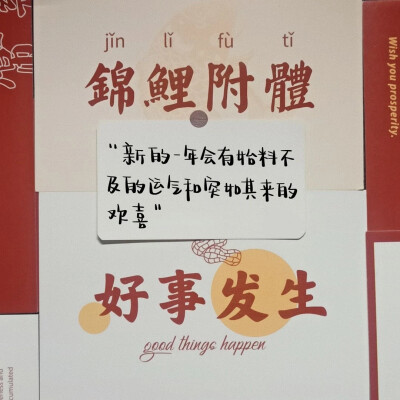 jǐn lǐ fù tǐ
錦鯉附體
Wish you prosperity.
"新的一年会有始料不
及的运气和突如其来的
欢喜"
好事发生
good things happen
ness and
cumulated